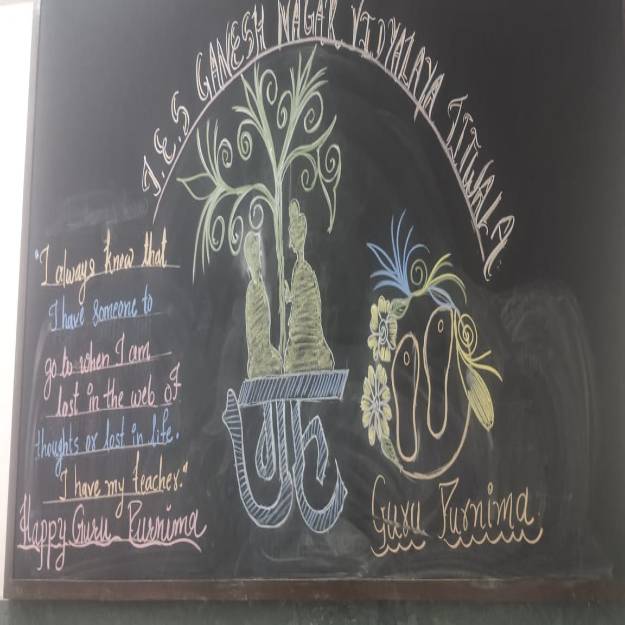 J.E.S GANESH NAGAR VIDYALAYA TITWALA
"I always knew that
I have someone to
go to when I am
lost in the web of
thoughts or lost in life.
I have my teacher."
Happy Guru Purnima
Guru Purnima